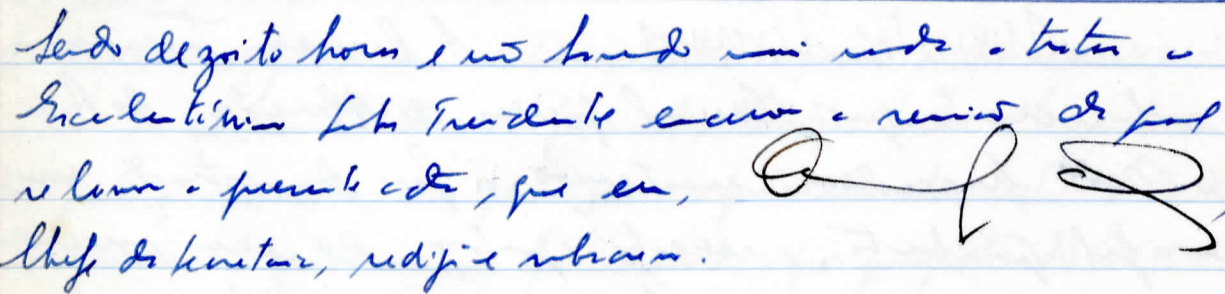 Sendo dezoito horas e não havendo mais nada a tratar o
Excelentíssimo Senhor Presidente encerrou a reunião da qual
se lavrou a presente acta, que eu,
Chefe da Secretaria, redigi e subscrevo.